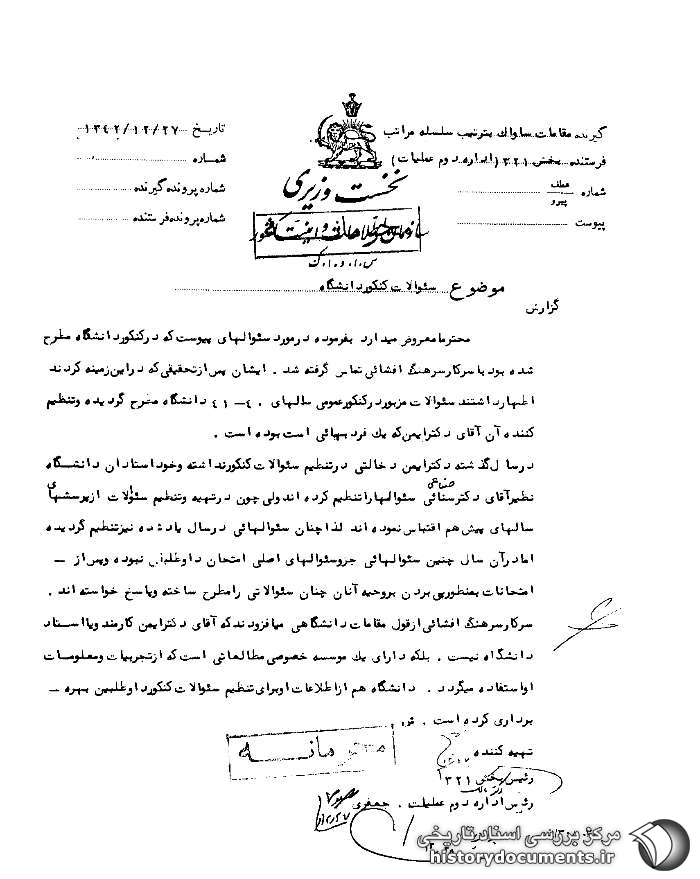 گیرنده مقامات ساواک بترتیب سلسله مراتب
فرستنده بخش ۳۲۱ (اداره دوم عملیات)
شماره عطف پیرو
پیوست
نخست وزیری
سازمان اطلاعات و امنیت کشور
س.ا.و.ا.ک
تاریخ ۱۳۴۲/۱۲/۲۷
شماره
شماره پرونده گیرنده
شماره پرونده فرستنده
موضوع سئوالات کنکور دانشگاه
گزارش
محترما معروض میدارد بفرموده در مورد سئوالهای پیوست که در کنکور دانشگاه مطرح
شده بود با سرکار سرهنگ افشائی تماس گرفته شد . ایشان پس از تحقیقی که در این زمینه کردند
اظهار داشتند سئوالات مزبور در کنکور عمومی سالهای ۴۰-۴۱ دانشگاه مطرح گردیده و تنظیم
کننده آن آقای دکتر ایمن که یک فرد بهائی است بوده است .
در سال گذشته دکتر ایمن دخالتی در تنظیم سئوالات کنکور نداشته و خود استادان دانشگاه
نظیر آقای دکتر صناعی سئوالها را تنظیم کرده اند ولی چون در تهیه و تنظیم سئولات از پرسشهای
سالهای پیش هم اقتباس نموده اند لذا چنان سئوالهائی در سال یاد شده نیز تنظیم گردیده
اما در آن سال چنین سئوالهائی جزو سئوالهای اصلی امتحان داوطلبان نبوده و پس از –
امتحانات بمنظور پی بردن بروحیه آنان چنان سئوالاتی را مطرح ساخته و پاسخ خواسته اند .
سرکار سرهنگ افشائی از قول مقامات دانشگاهی میافزودند که آقای دکتر ایمن کارمند ویا استاد
دانشگاه نیست . بلکه دارای یک موسسه خصوصی مطالعاتی است که از تجربیات و معلومات
او استفاده میگردد . دانشگاه هم از اطلاعات او برای تنظیم سئوالات کنکور داوطلبین بهره –
برداری کرده است . ش
تهیه کننده
رئیس بخش ۳۲۱
رئیس اداره دوم عملیات . جعفری
محرمانه
۱۲/۲۷
مرکز بررسی اسناد تاریخی
historydocuments.ir